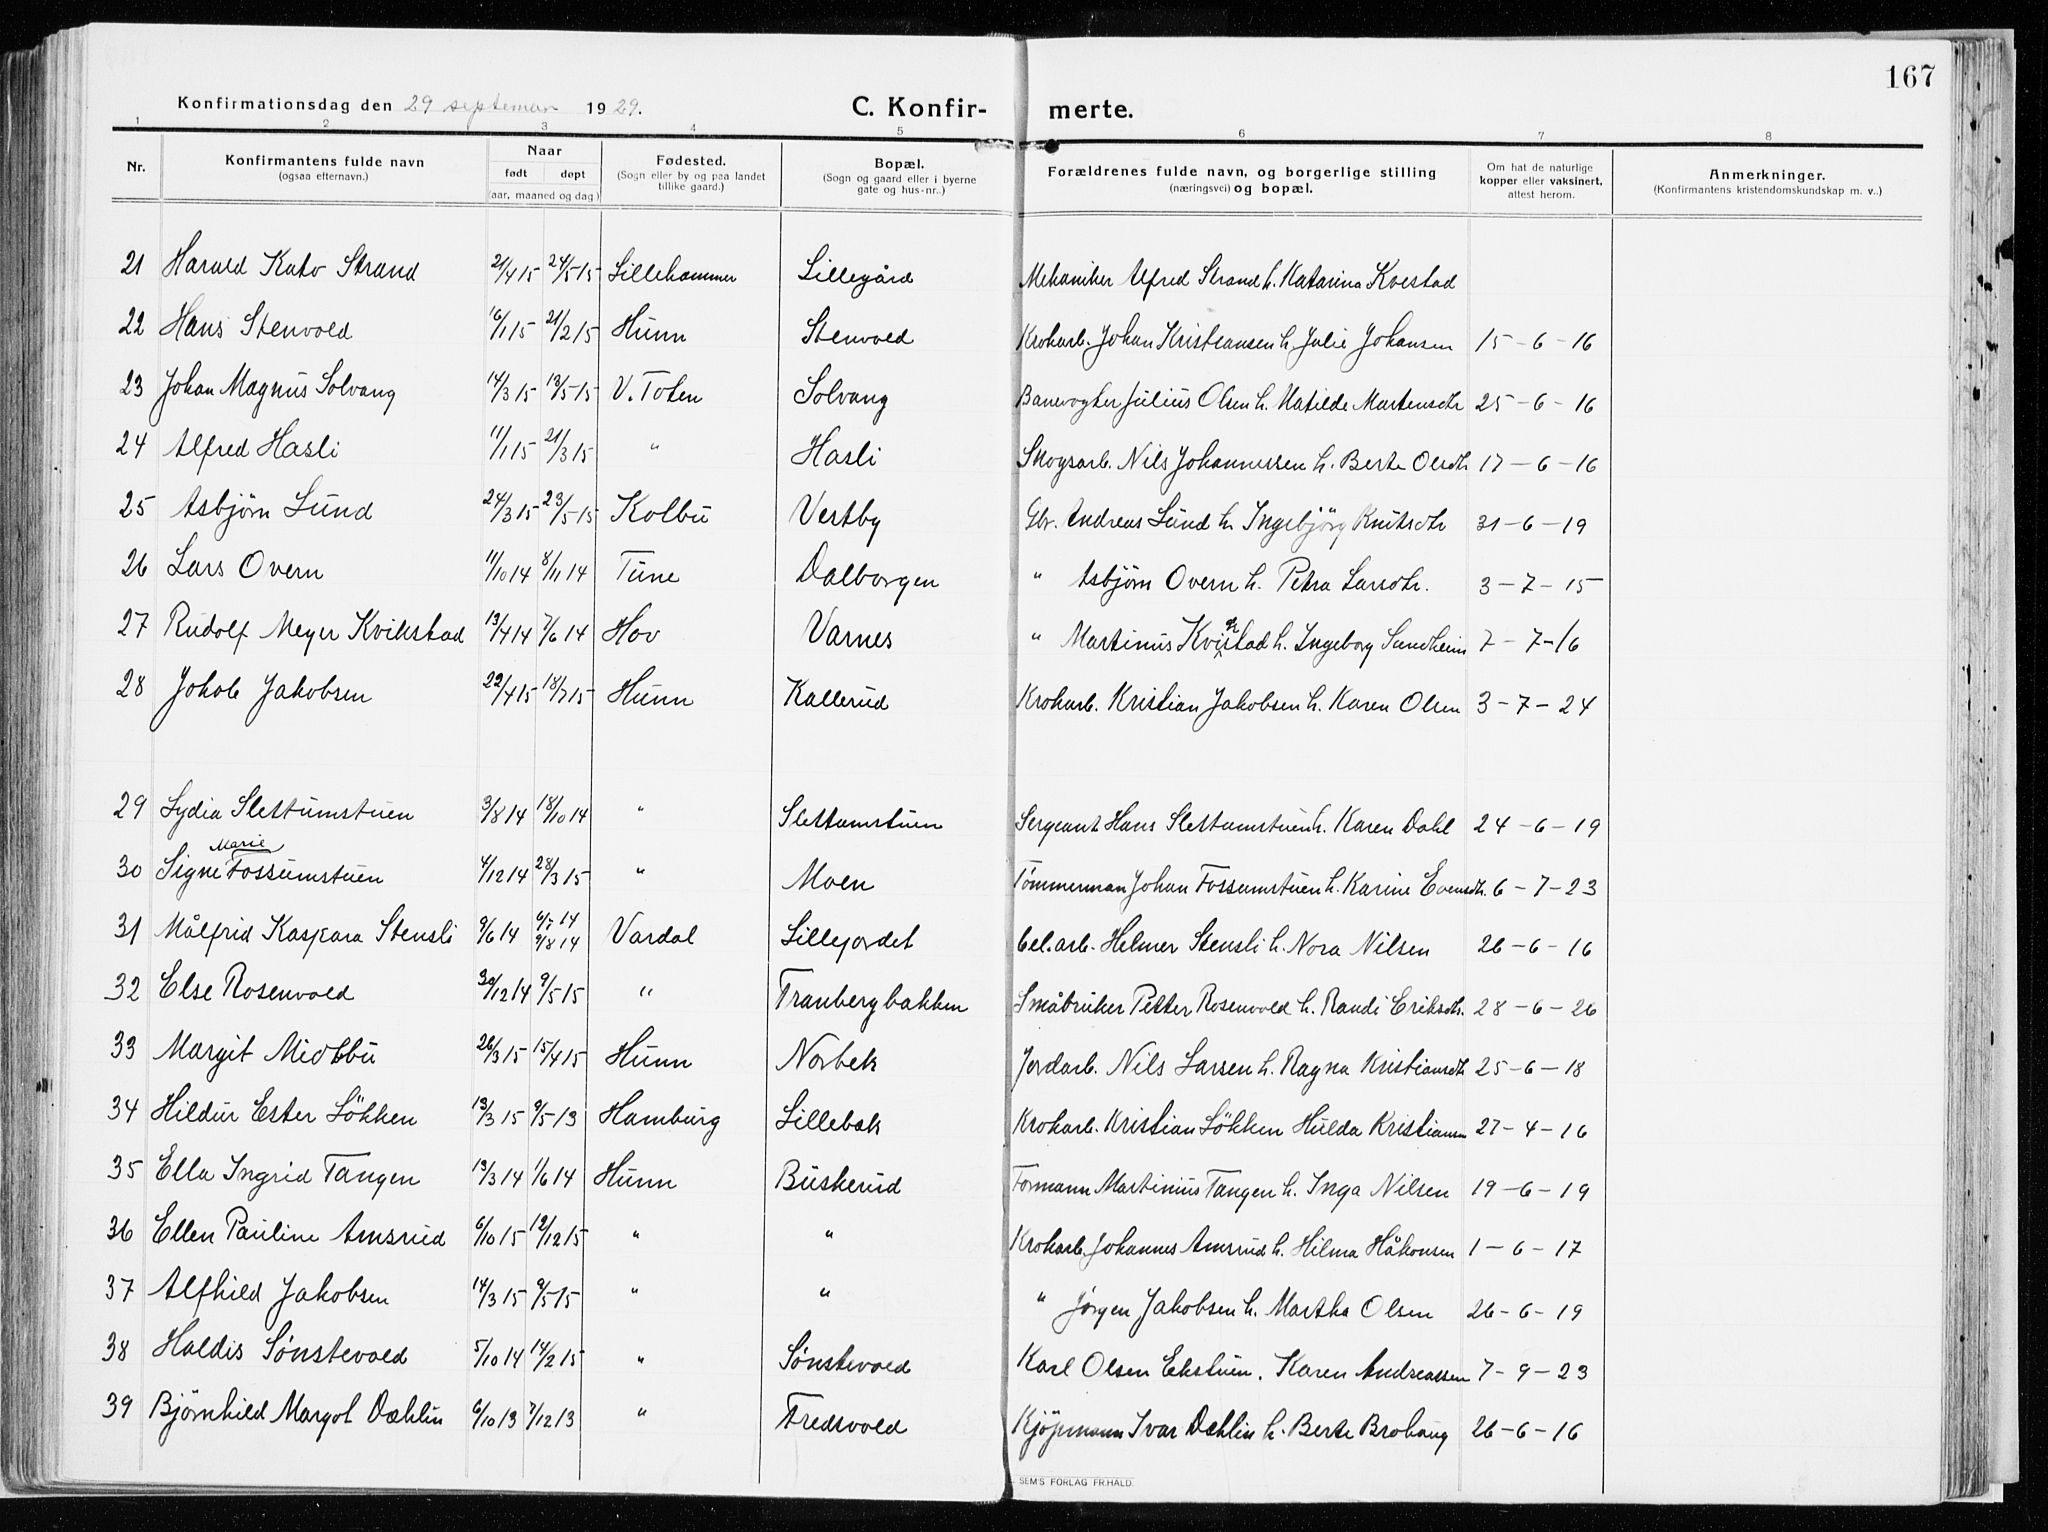 167
Konfirmationsdag den 29 september 1929. C. Konfir- merte.
1 2 3 4 5 6 7 8
Nr. Konfirmantens fulde navn (ogsaa efternavn.) Naar født døpt (aar, maaned og dag) Fødested. (Sogn eller by og paa landet tillike gaard.) Bopæl. (Sogn og gaard eller i byerne gate og hus-nr.) Forældrenes fulde navn, og borgerlige stilling (næringsvei) og bopæl. Om hat de naturlige kopper eller vaksinert, attest herom. Anmerkninger. (Konfirmantens kristendomskundskap m. v.)
21 Harald Kato Strand 21/4 15 24/5 15 Lillehammer Lillegård Mekaniker Alfred Strand h. Katarina Kvestad
22 Hans Stenvold 16/1 15 21/2 15 Hunn Stenvold Krokarb. Johan Kristiansen h. Julie Johansen 15-6-16
23 Johan Magnus Solvang 14/3 15 13/5 15 V. Toten Solvang Banevogter Julius Olsen h. Matilde Martensdtr 25-6-16
24 Alfred Hasli 11/1 15 21/3 15 " Hasli Skogsarb. Nils Johannessen h. Berte Olsdtr 17-6-16
25 Asbjørn Lund 24/3 15 23/5 15 Kolbu Vestby Gbr. Andreas Lund h. Ingebjörg Knutsdtr 31-6-19
26 Lars Overn 11/10 14 8/11 14 Tune Dalborgen " Asbjørn Overn h. Petra Larsdtr. 3-7-15
27 Rudolf Meyer Kvikstad 13/4 14 7/6 14 Hov Varnes " Martinus Kvikstad h. Ingeborg Sundheim 7-7-16
28 Jokob Jakobsen 22/4 15 18/7 15 Hunn Kallerud Krokarb. Kristian Jakobsen h. Karen Olsen 3-7-24
29 Lydia Slettumstuen 3/8 14 18/10 14 " Slettumstuen Sergeant Hans Slettumstuen h. Karen Dahl 24-6-19
30 Signe Marie Fossumstuen 4/12 14 28/3 15 " Moen Tömmerman Johan Fossumstuen h. Karine Evensdtr. 6-7-23
31 Målfrid Kaspara Stensli 9/6 14 9/8 14 Vardal Lillejordet Cel.arb. Helmer Stensli h. Nora Nilsen 26-6-16
32 Else Rosenvold 30/12 14 9/5 15 " Tranbergbakken Småbruker Petter Rosenvold h. Randi Eriksdtr. 28-6-26
33 Margit Midtbu 26/3 15 15/4 15 Hunn Norbek Jordarb. Nils Larsen h. Ragna Kristiansdtr 25-6-18
34 Hildur Ester Lökken 13/3 15 9/5 13 Hamburg Lillebak Krokarb. Kristian Lökken Hulda Kristiansen 27-4-16
35 Ella Ingrid Tangen 13/3 14 1/6 14 Hunn Buskerud Formann Martinius Tangen h. Inga Nilsen 19-6-19
36 Ellen Pauline Amsrud 6/10 15 12/12 15 " " Krokarb. Johannes Amsrud h. Hilma Håkonsen 1-6-17
37 Alfhild Jakobsen 14/3 15 9/5 15 " " " Jørgen Jakobsen h. Martha Olsen 26-6-19
38 Haldis Sønstevold 5/10 14 14/2 15 " Sønstevold Karl Olsen Ekstuen. Karen Andreassen 7-9-23
39 Bjørnhild Margot Dæhlin 6/10 13 7/12 13 " Fredsvold Kjöpmann Ivar Dæhlin h. Berte Brohaug 26-6-16
SEM'S FORLAG FR.HALD.